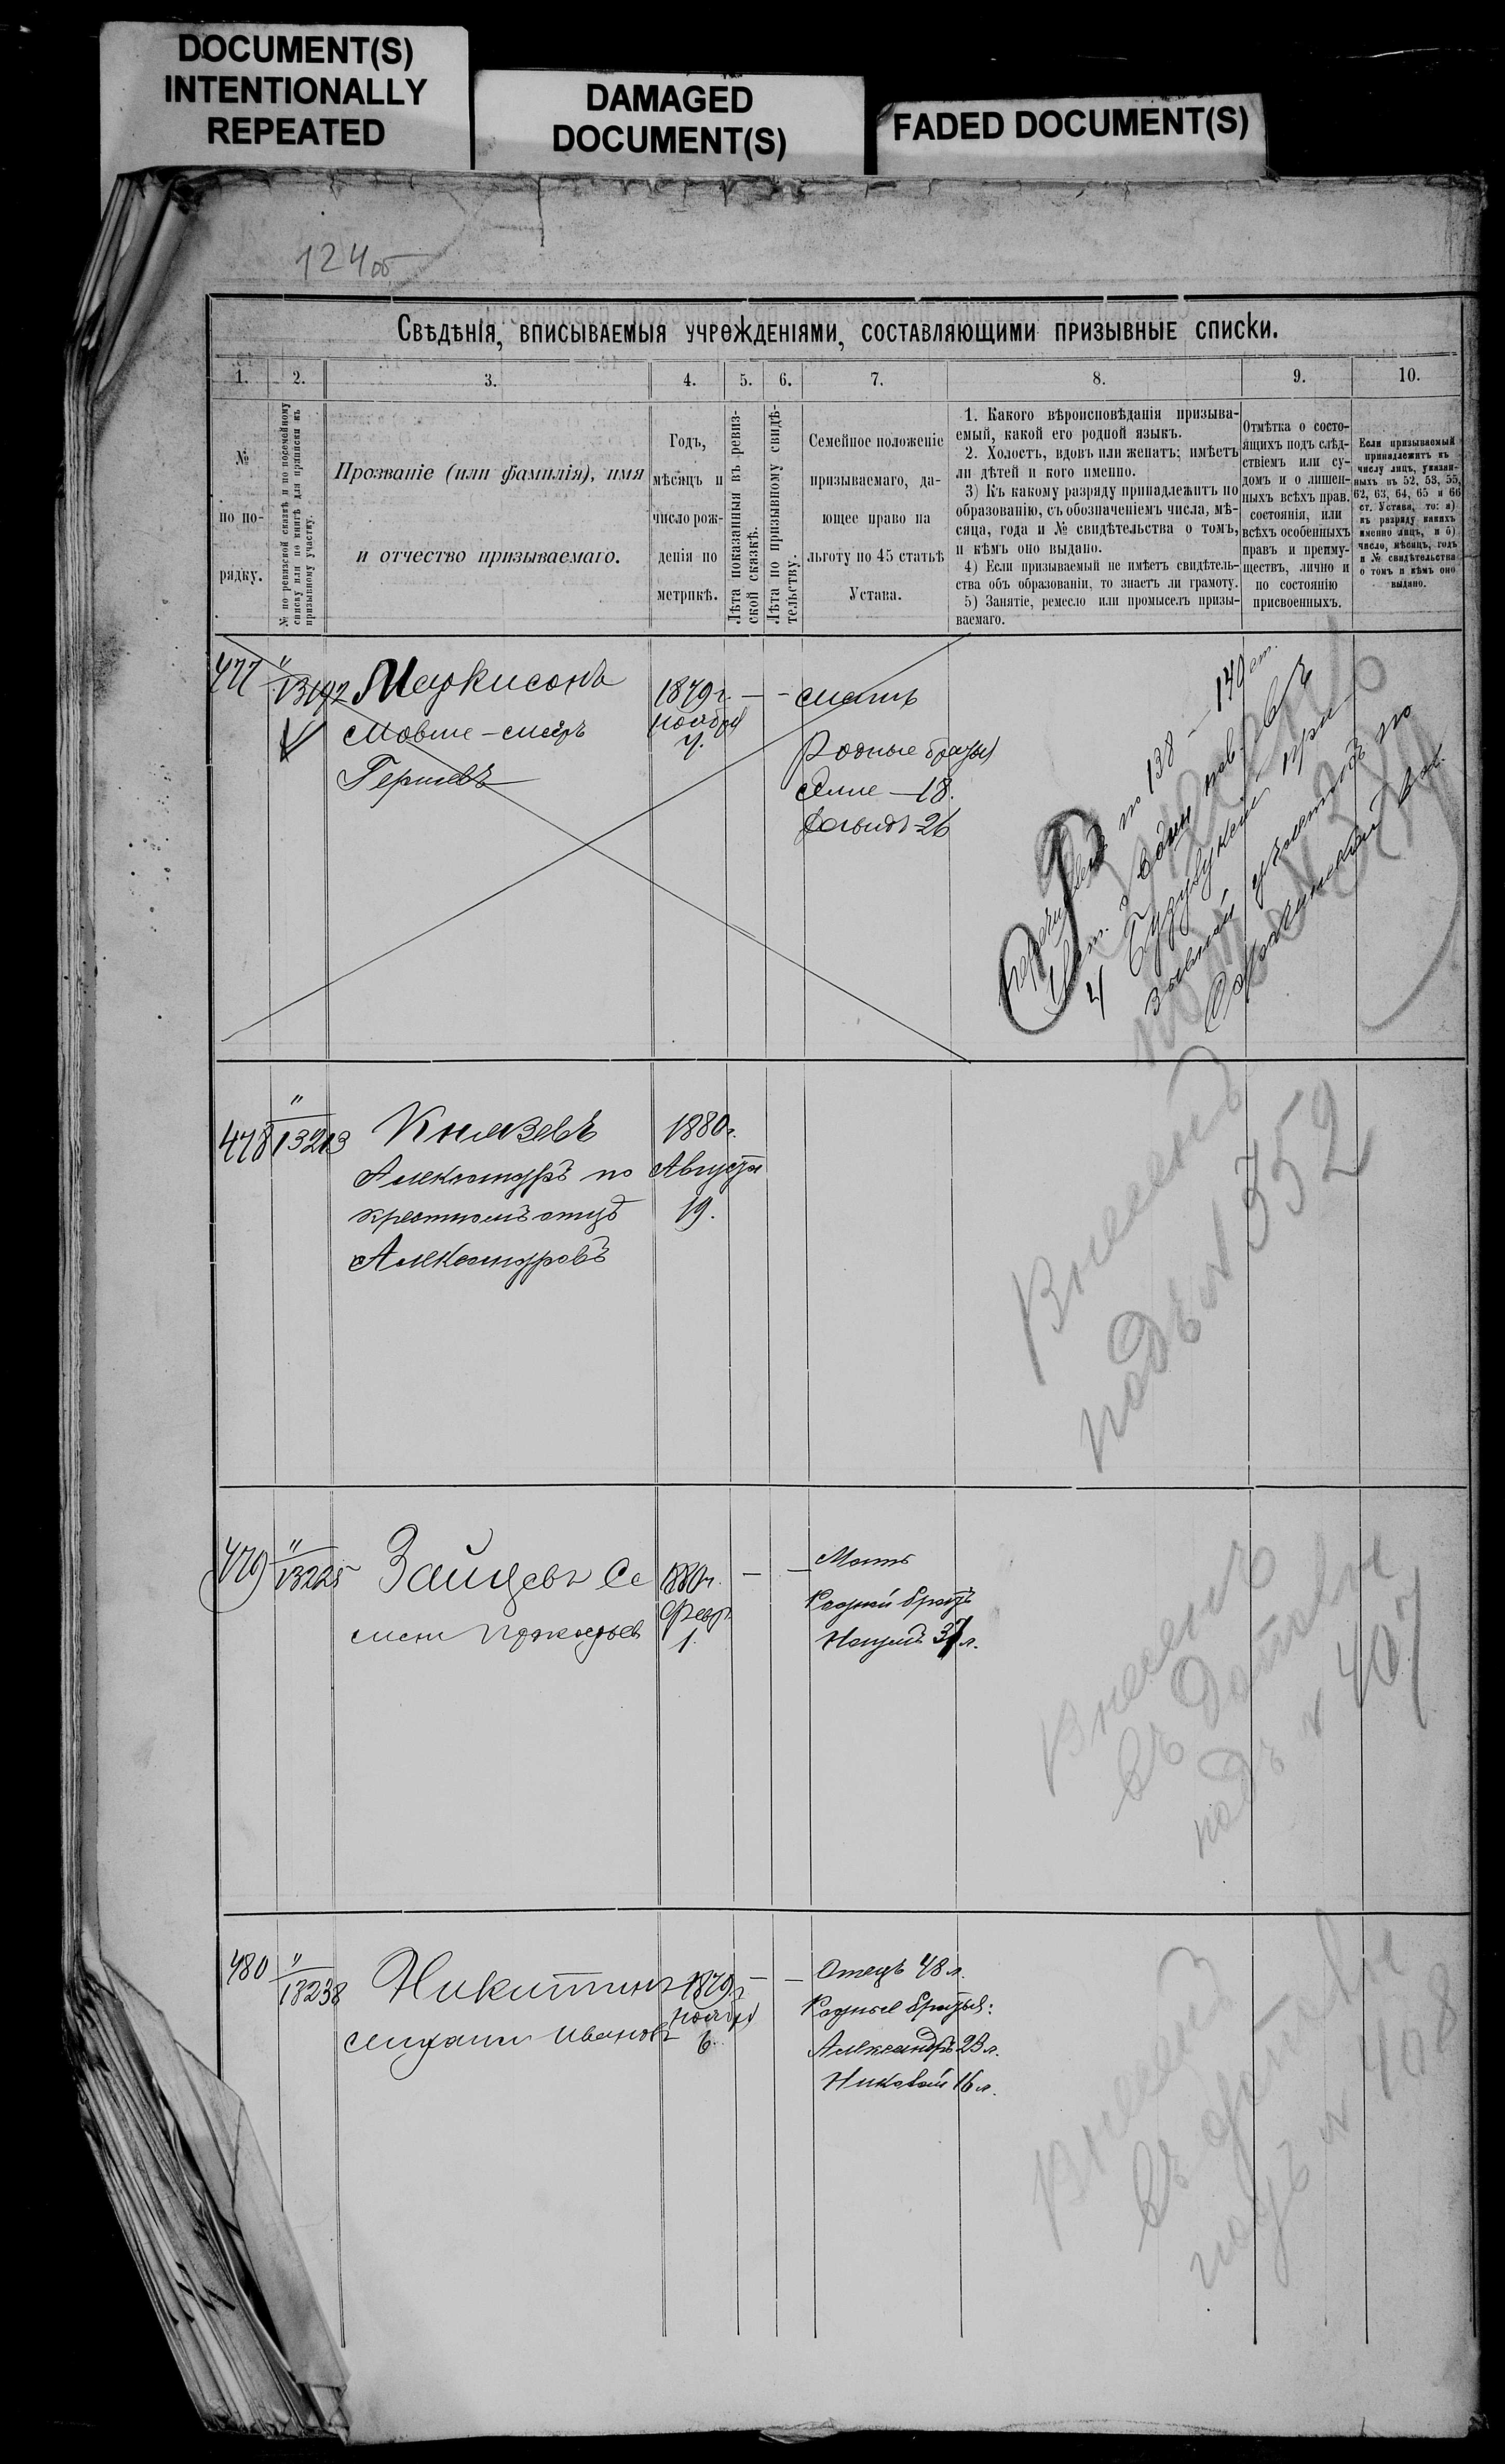 DOCUMENT(S)
INTENTIONALLY
REPEATED
DAMAGED
DOCUMENT(S)
FADED DOCUMENT(S)
124об
Свѣдѣнія, вписываемыя учрежденіями, составляющими призывные списки.
1. 2. 3. 4. 5. 6. 7. 8. 9. 10.
№
по по-
рядку.
№ по ревизской сказкѣ и по посемейному
списку или по книгѣ для приписки къ
призывному участку.
Прозваніе (или фамилія), имя
и отчество призываемаго.
Годъ,
мѣсяцъ и
число рож-
денія по
метрикѣ.
Лѣта показанныя въ ревиз-
ской сказкѣ.
Лѣта по призывному свидѣ-
тельству.
Семейное положеніе
призываемаго, да-
ющее право на
льготу по 45 статьѣ
Устава.
1. Какого вѣроисповѣданія призыва-
емый, какой его родной языкъ.
2. Холостъ, вдовъ или женатъ; имѣетъ
ли дѣтей и кого именно.
3) Къ какому разряду принадлежитъ по
образованію, съ обозначеніемъ числа, мѣ-
сяца, года и № свидѣтельства о томъ,
и кѣмъ оно выдано.
4) Если призываемый не имѣетъ свидѣтель-
ства объ образованіи, то знаетъ ли грамоту.
5) Занятіе, ремесло или промыселъ призы-
ваемаго.
Отмѣтка о состо-
ящихъ подъ слѣд-
ствіемъ или су-
домъ и о лишен-
ныхъ всѣхъ прав.
состоянія, или
всѣхъ особенныхъ
правъ и преиму-
ществъ, лично и
по состоянію
присвоенныхъ.
Если призываемый
принадлежитъ къ
числу лицъ, указан-
ныхъ въ 52, 53, 55,
62, 63, 64, 65 и 66
ст. Устава, то: а)
къ разряду какихъ
именно лицъ, и б)
число, мѣсяцъ, годъ
и № свидѣтельства
о томъ и кѣмъ оно
выдано.
477
" 13192
Маркисонъ
Мовше-Мееръ
Гершевъ
1879 г.
Ноября
7.
— -
Мать
Родные братья
18.
Давидъ 26
по 138 — 139 ст.
4
участокъ по
478
" 13213
Князевъ
Александръ по
крестному отцу
Александровъ
1880 г.
Августа
19.
Внесенъ
подъ № 352
479
" 13225
Зайцевъ Се
менъ Прокофьев
1880 г.
Февр.
1.
— —
Мать
Родной братъ
37 л.
Внесенъ
въ
подъ № 407
480
" 13238
Никитинъ
Михаилъ Ивановъ
1879 г.
Ноября
6.
— —
Отецъ 48 л.
Родные братья:
Александръ 23 л.
Николай 16 л.
Внесенъ
въ
подъ № 408